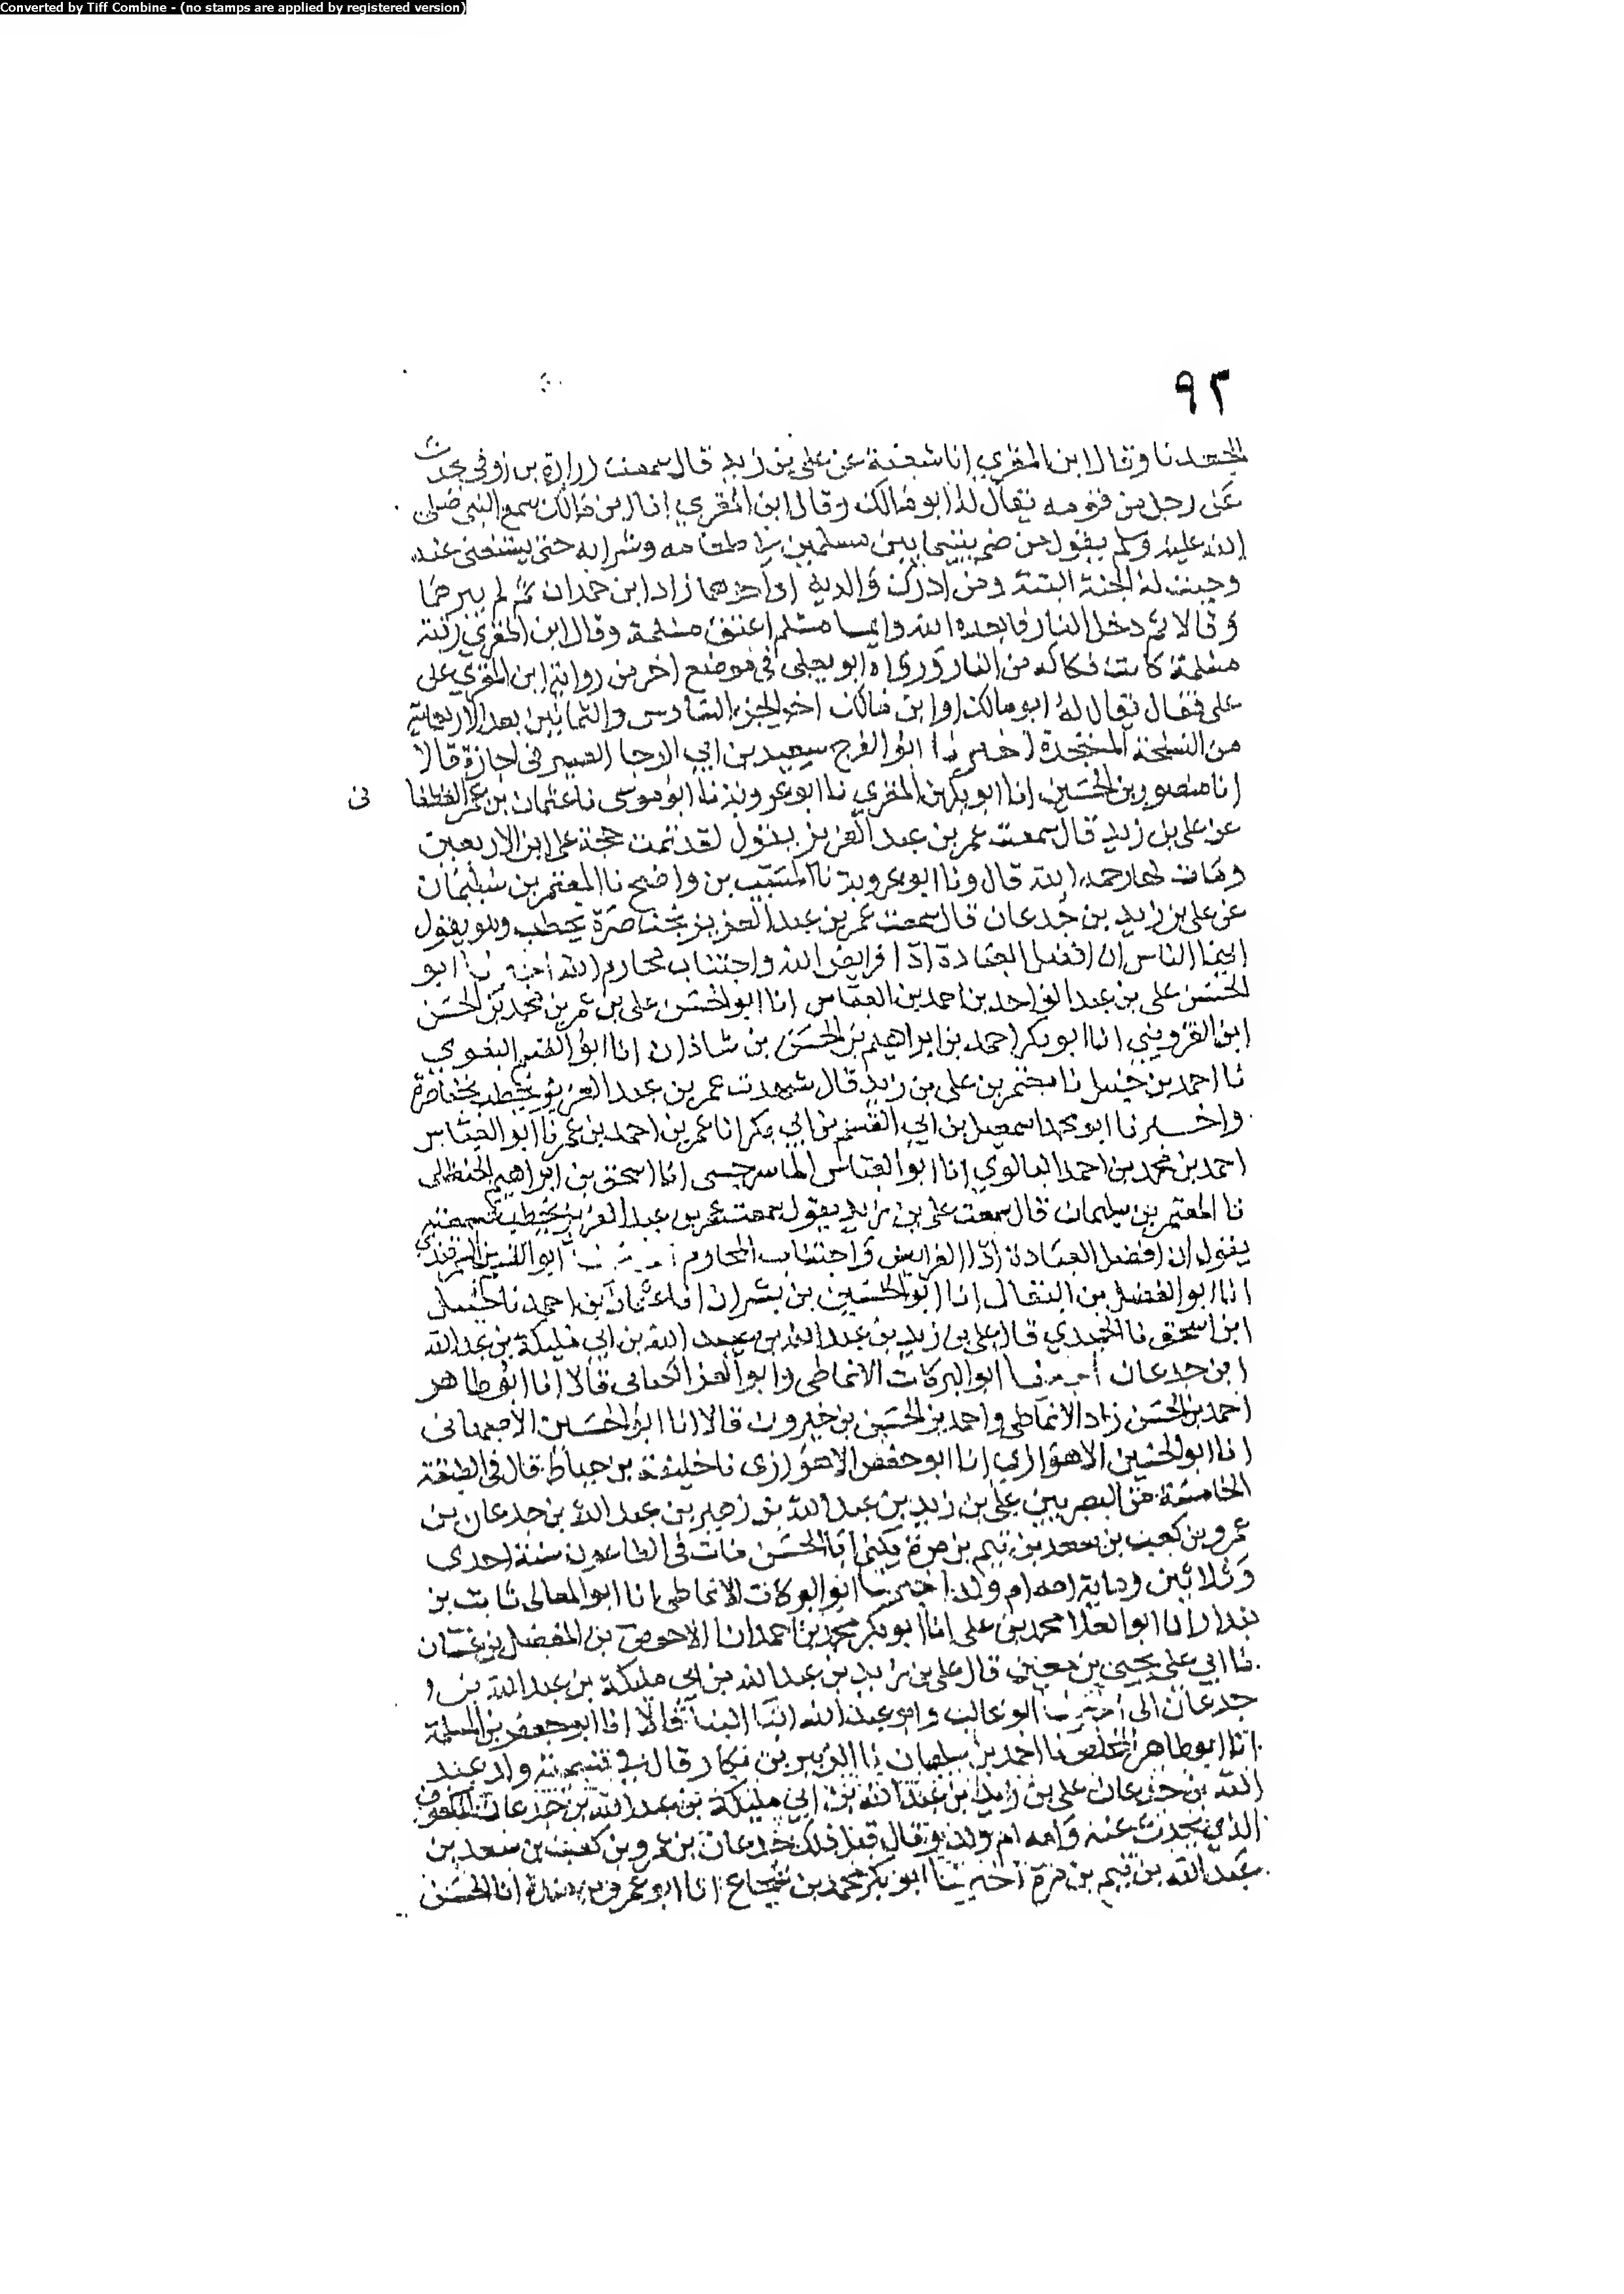 Converted by Tiff Combine - (no stamps are applied by registered version)
٩٢
الجعد نا وقال ابن المقري انا شعبة عن علي بن زيد قال سمعت زرارة بن اوفى يحدث
عن رجل من قومه يقال له ابو مالك وقال ابن المقري انا ابن مالك سمع النبي صلى
الله عليه وسلم يقول من ضم يتيما بين مسلمين الى طعامه وشرابه حتى يستغني عنه
وجبت له الجنة البتة ومن ادرك والديه او احدهما زاد ابن حمدان ثم لم يبرهما
وقالا ثم دخل النار فابعده الله وايما مسلم اعتق مسلمة وقال ابن المقري رقبة
مسلمة كانت فكاكه من النار ورواه ابو يعلى في موضع اخر من رواية ابن المقري على
علي فقال يقال له ابو مالك او ابن مالك اخر الجزء السادس والثمانين بعد الاربعمائة
من النسخة المستجدة اخبرنا ابو الفرج سعيد بن ابي الرجا الصيرفي اجازة قالا
انا منصور بن الحسين انا ابو بكر بن المقري نا ابو عروبة نا ابو موسى نا عثمان بن عمر
عن علي بن زيد قال سمعت عمر بن عبد العزيز يقول لقد تمت حجة على ابن الاربعين
ومات لها رحمه الله قال ونا ابو عروبة نا المسيب بن واضح نا المعتمر بن سليمان
عن علي بن زيد بن جدعان قال سمعت عمر بن عبد العزيز بخناصرة يخطب وهو يقول
ايها الناس ان افضل العبادة اداء فرايض الله واجتناب محارم الله اخبرنا ابو
الحسن علي بن عبد الواحد بن احمد بن العباس انا ابو الحسن علي بن عمر بن محمد بن الحسن
ابن القزويني انا ابو بكر احمد بن ابراهيم بن الحسن بن شاذان انا ابو القسم البغوي
نا احمد بن حنبل نا معتمر بن علي بن زيد قال شهدت عمر بن عبد العزيز يخطب بخناصرة
واخبرنا ابو محمد اسمعيل بن ابي القسم بن ابي بكر انا عمر بن احمد بن عمر نا ابو العباس
احمد بن محمد بن احمد البالوي انا ابو العباس الماسرجسي انا اسحق بن ابراهيم الحنظلي
نا المعتمر بن سليمان قال سمعت علي بن زيد يقول سمعت عمر بن عبد العزيز يخطب فسمعته
يقول ان افضل العبادة اداء الفرايض واجتناب المحارم اخبرنا ابو القسم بن السمرقندي
انا ابو الفضل بن البقال انا ابو الحسين بن بشران انا عثمان بن احمد نا حنبل
ابن اسحق نا الحميدي قال علي بن زيد بن عبد الله بن عبد الله بن ابي مليكة بن عبد الله
ابن جدعان اخبرنا ابو البركات الانماطي وابو العز الكناني قالا انا ابو طاهر
احمد بن الحسن زاد الانماطي واحمد بن الحسن بن خيرون قالا انا ابو الحسين الاصبهاني
انا ابو الحسين الاهوازي انا ابو حفص الاهوازي نا خليفة بن خياط قال في الطبقة
الخامسة من البصريين علي بن زيد بن عبد الله بن زهير بن عبد الله بن جدعان بن
عمرو بن كعب بن سعد بن تيم بن مرة يكنى ابا الحسن مات في الطاعون سنة احدى
وثلاثين وماية امه ام ولد اخبرنا ابو البركات الانماطي انا ابو المعالي ثابت بن
بندار انا ابو العلا محمد بن علي انا ابو بكر محمد بن احمد انا الاحوص بن المفضل بن غسان
نا ابي علي يحيى بن معين قال علي بن زيد بن عبد الله بن ابي مليكة بن عبد الله بن
جدعان الى اخبرنا ابو غالب وابو عبد الله ابنا البنا قالا انا ابو جعفر بن المسلمة
انا ابو طاهر المخلص نا احمد بن سليمان نا الزبير بن بكار قال في تسمية ولد عبد
الله بن جدعان علي بن زيد بن عبد الله بن ابي مليكة بن عبد الله بن جدعان المكفوف
الذي يحدث عنه وامه ام ولد وقال قبل ذلك جدعان بن عمرو بن كعب بن سعد بن
عبد الله بن تيم بن مرة اخبرنا ابو بكر محمد بن شجاع انا ابو عمرو بن مندة انا الحسن